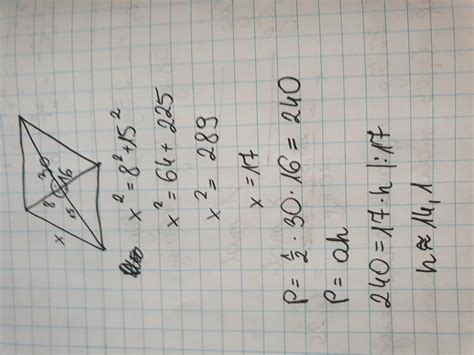 30
8
16
x
15
x² = 8² + 15²
x² = 64 + 225
x² = 289
x = 17
P = ½ · 30 · 16 = 240
P = ah
240 = 17 · h | : 17
h ≈ 14,1